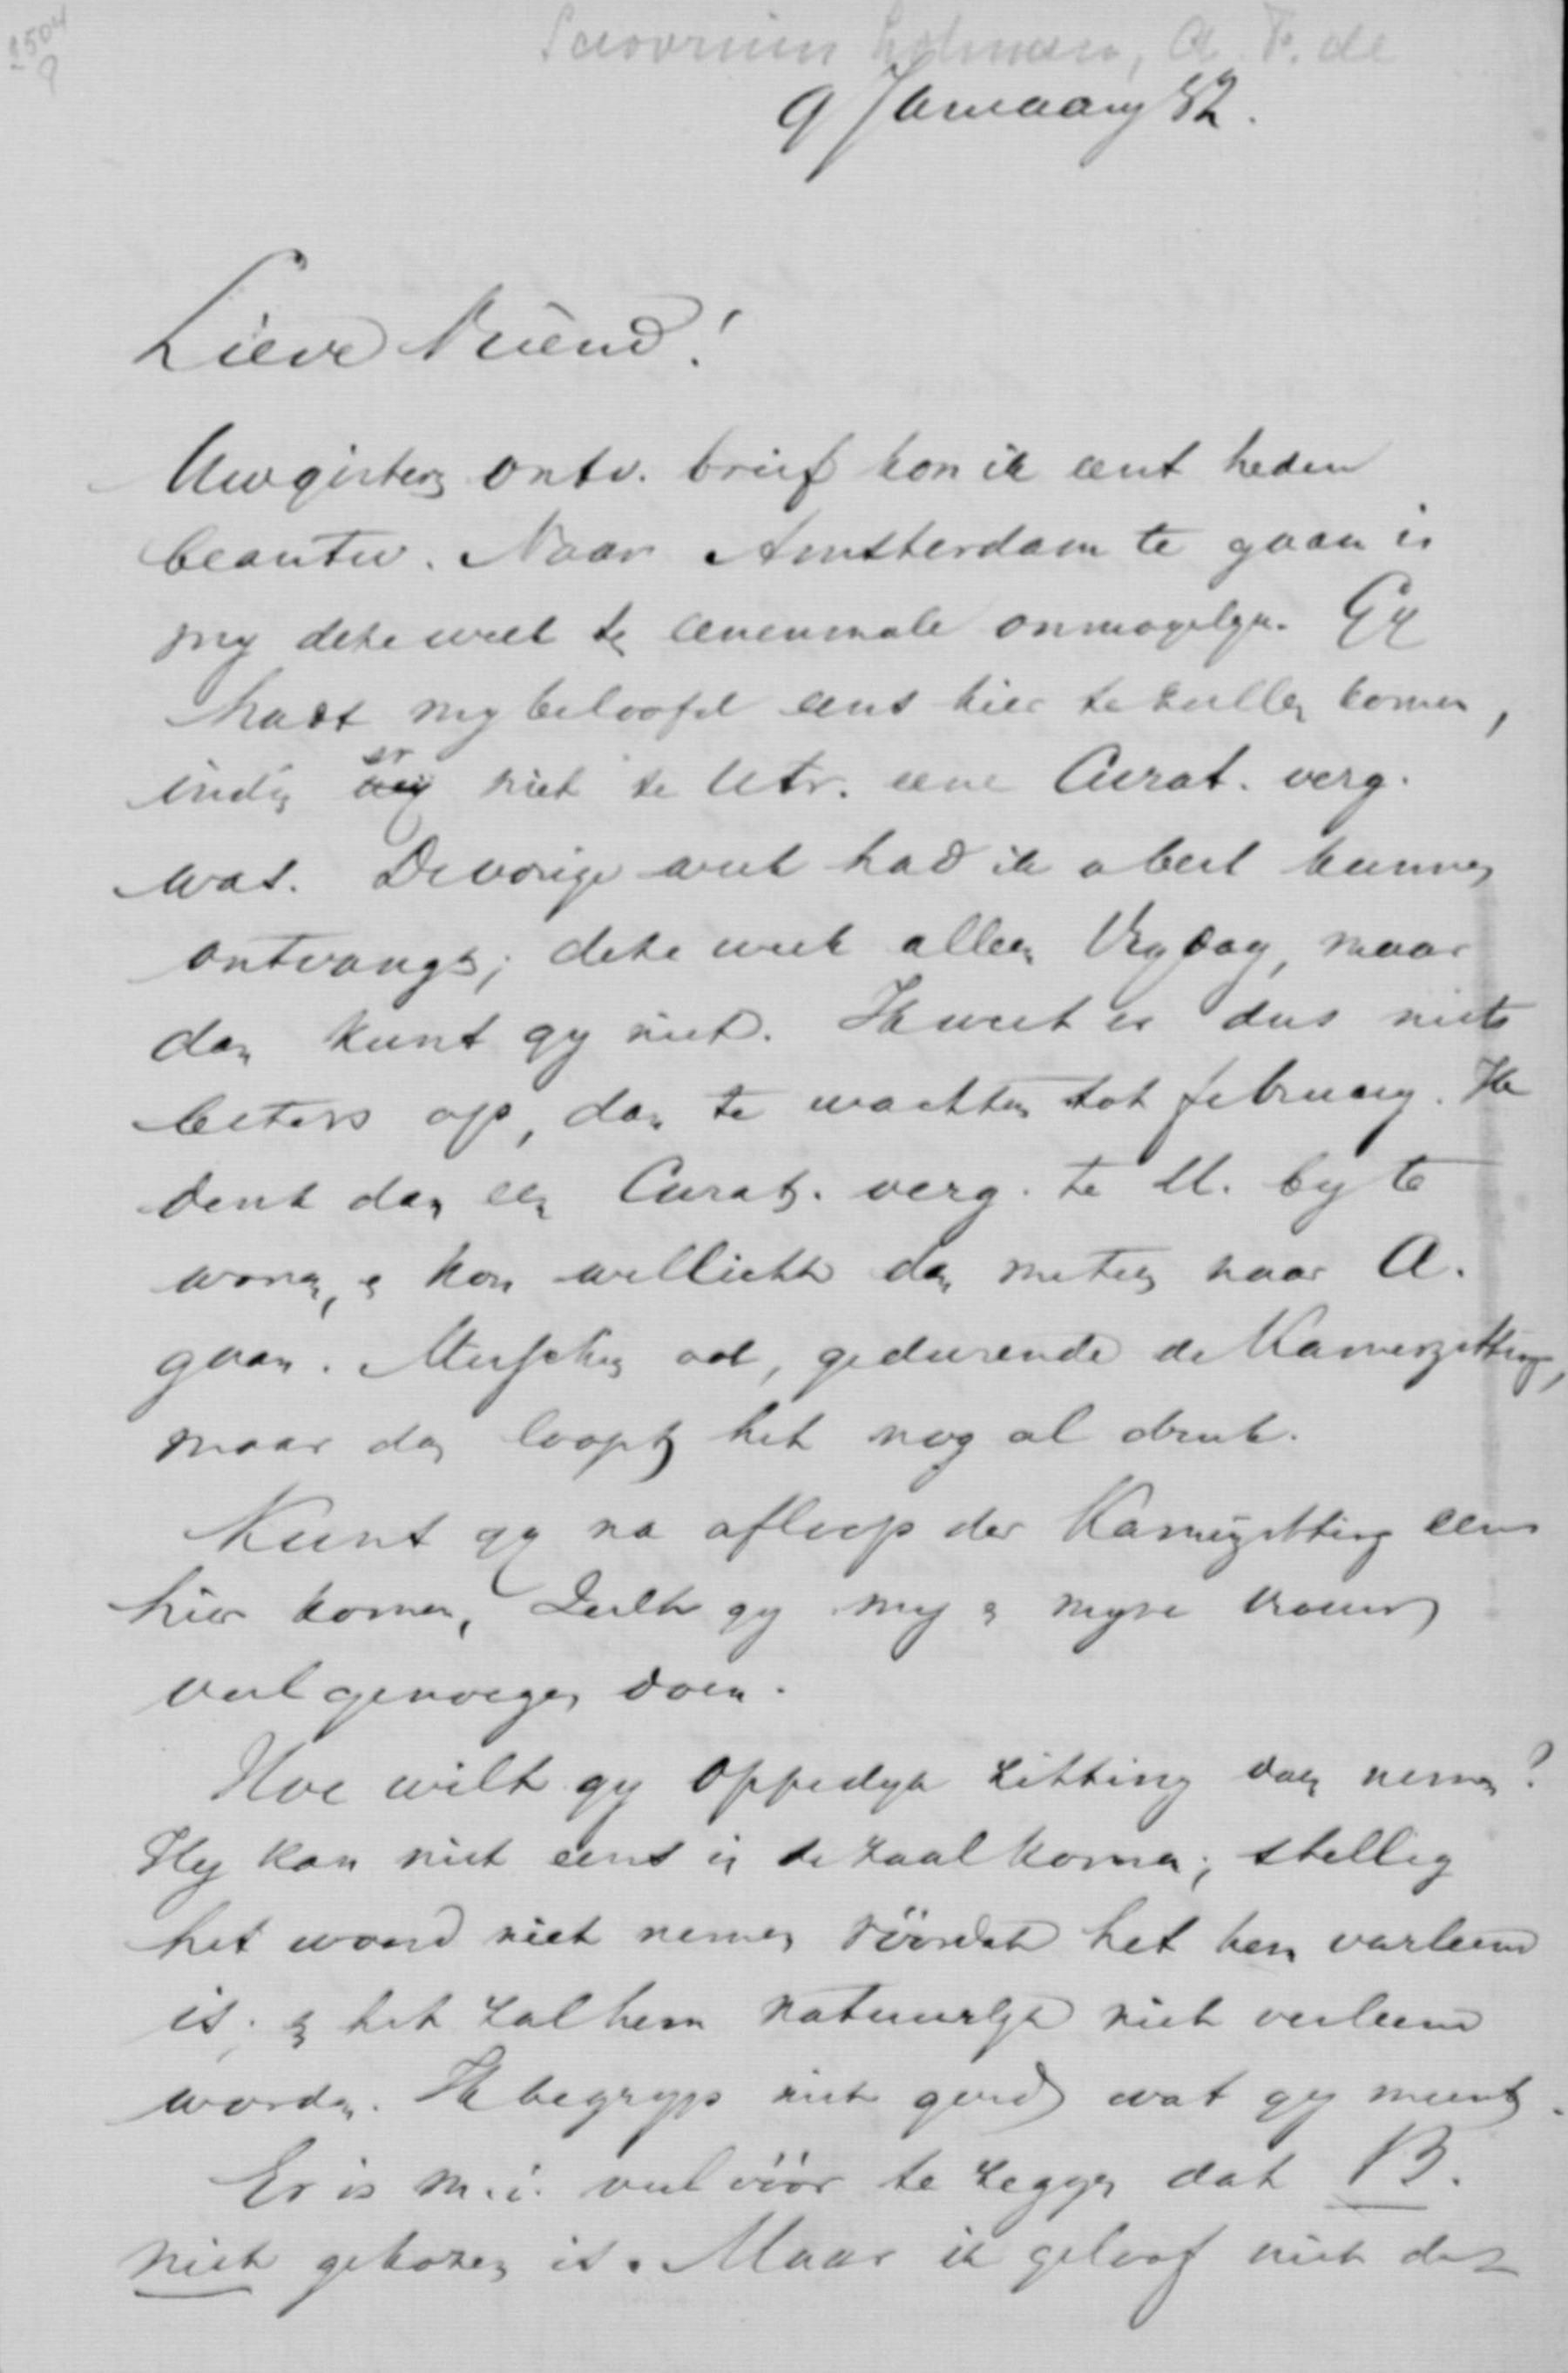 2504
9
Savornin Lohman, A. F. de
9 January 82.
Lieve Vriend!
Uw gisteren ontv. brief kon ik eerst heden
beantw. Naar Amsterdam te gaan is
my deze week te eenenmale onmogelyk. Gy
hadt my beloofd eens hier te zullen komen,
indien er niet te Utr. eene Curat. verg.
was. De vorige week had ik u best kunnen
ontvangen; deze week alleen Vrydag, maar
dan kunt gy niet. Ik weet er dus niets
beters op, dan te wachten tot february. Ik
denk dan een Curat. verg. te U. by te
wonen, en kon wellicht dan meteen naar A.
gaan. Misschien ook, gedurende de Kamerzitting,
maar dan loopt het nog al druk.
Kunt gy na afloop der Kamerzitting eens
hier komen, Zult gy my en myne vrouw
veel genoegen doen.
Hoe wilt gy Oppedyk zitting doen nemen?
Hy kan niet eens in de zaal komen; stellig
het woord niet nemen vóórdat het hem verleend
is; en het zal hem natuurlyk niet verleend
worden. Ik begryp niet goed wat gy meent.
Er is m.i. veel vóór te zeggen dat B.
niet gekozen is. Maar ik geloof niet dat